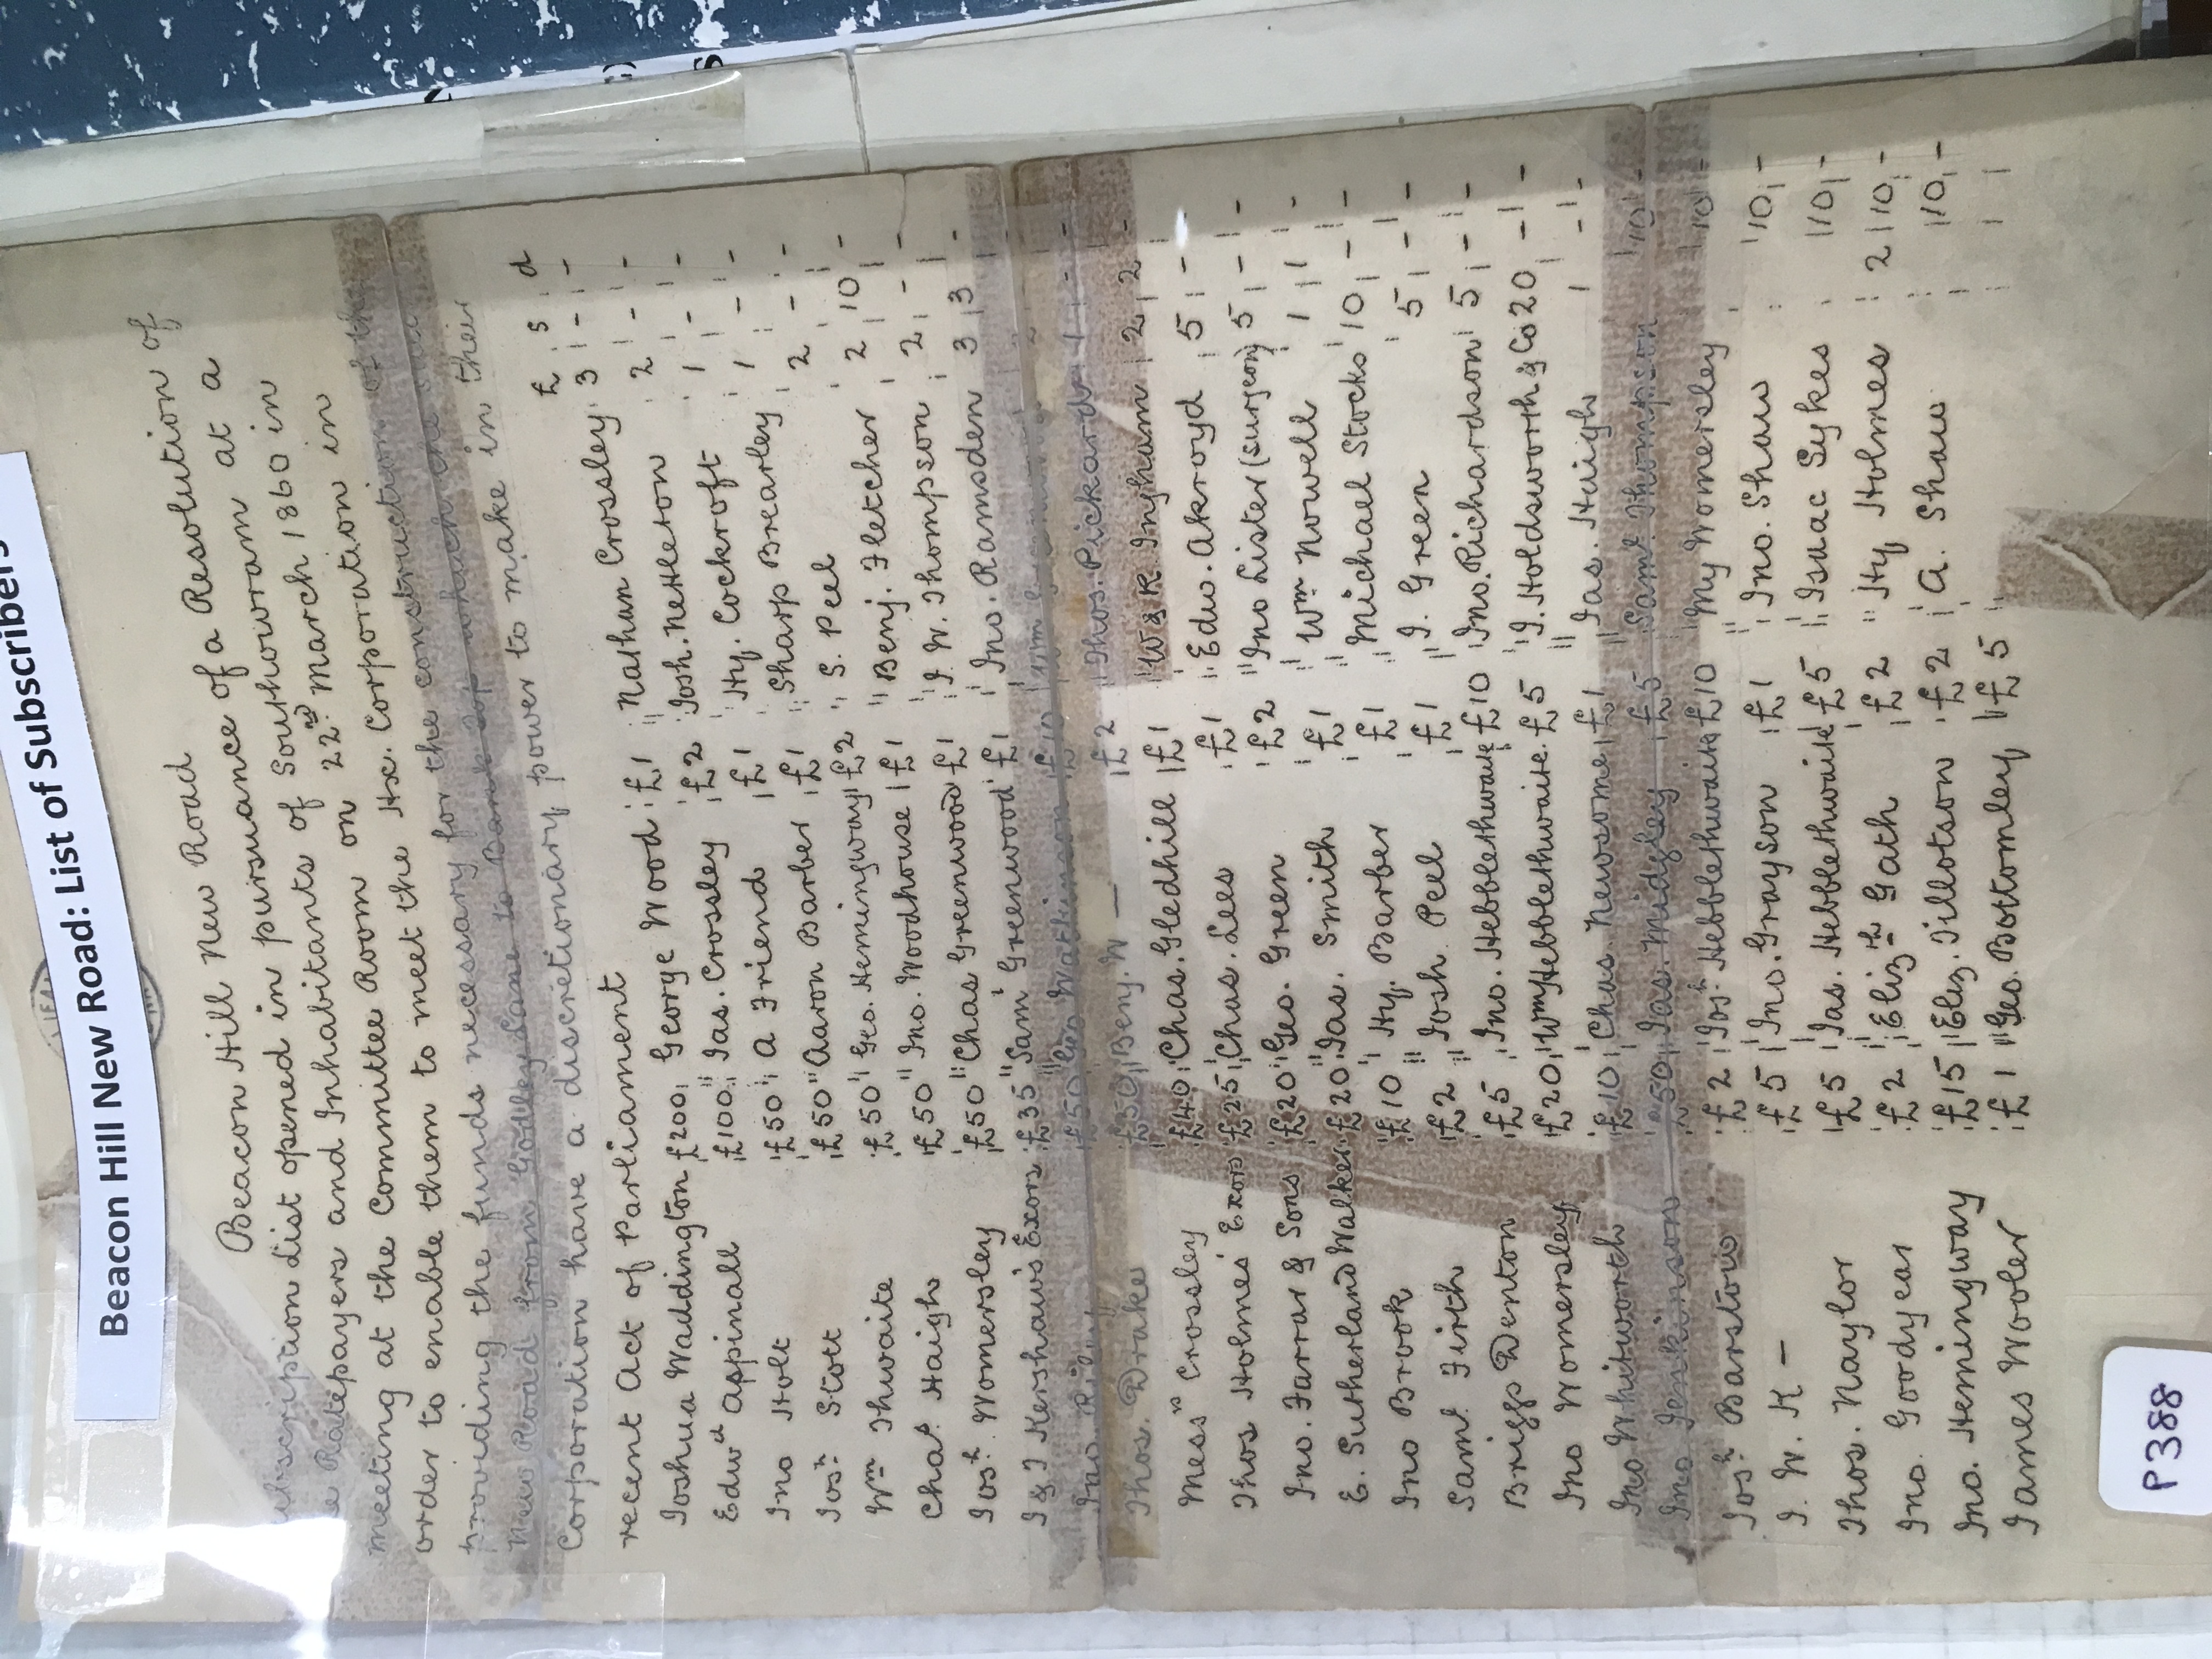 Beacon Hill New Road: List of Subscribers
Beacon Hill New Road
Subscription List opened in pursuance of a Resolution of
Ratepayers and Inhabitants of Southowram at a
meeting at the Committee Room on 22nd March 1860 in
order to enable them to meet the Hx. Corporation in
providing the funds necessary for the construction of the
New Road from Godley Lane to Bank Top which the said
Corporation have a discretionary power to make in their
recent Act of Parliament
£ s d
Joshua Waddington £200 George Wood £1 Nathan Crossley 3 - -
Edwd Appinall £100 Jas. Crossley £2 Josh. Nettleton 2 - -
Jno Holt £50 A Friend £1 Hy. Cockroft 1 - -
Josh Stott £50 Aaron Barber £1 Sharp Brearley 1 - -
Wm Thwaite £50 Geo. Hemingway £2 S. Peel 2 - -
Chas. Haigh £50 Jno. Woodhouse £1 Benj. Fletcher 2 10 -
Josh. Womersley £50 Chas Greenwood £1 J. W. Thompson 2 - -
J & J Kershaw's Exors £35 Saml Greenwood £1 Jno. Ramsden 3 3 -
Jno. £50 Geo Watkinson £10
Thos. Drake £50 Benj. W — £2 Thos. Pickard 1 - -
Messrs Crossley £40 Chas. Gledhill £1 W & R. Ingham 2 2 -
Thos Holmes' Exors £25 Chas. Lees £1 Edw. Akroyd 5 - -
Jno. Farrar & Sons £20 Geo. Green £2 Jno Lister (surgeon) 5 - -
E. Sutherland Walker £20 Jas. Smith £1 Wm Nowell 1 1 -
Jno Brook £10 Hy. Barber £1 Michael Stocks 10 - -
Saml Firth £2 Josh. Peel £1 J. Green 5 - -
Briggs Denton £5 Jno. Hebblethwaite £10 Jno. Richardson 5 - -
Jno Womersley £20 Wm Hebblethwaite £5 J. Holdsworth & Co 20 - -
Jno Whitworth £10 Chas. Newsome £1 Jas. Haigh 1 - -
Jno Jenkinson £50 Jas. Midgley £5 Saml Thompson 10 -
Josh Barstow £2 Josh Hebblethwaite £10 My Womersley 10 -
J. W. K - £5 Jno. Grayson £1 Jno. Shaw 10 -
Thos. Naylor £5 Jas. Hebblethwaite £5 Isaac Sykes 10 -
Jno. Goodyear £2 Elizth Gath £2 Hy Holmes 2 10 -
Jno. Hemingway £15 Eliz. Tillotson £2 A. Shaw 10 -
James Wooler £1 Geo. Bottomley £5
P388